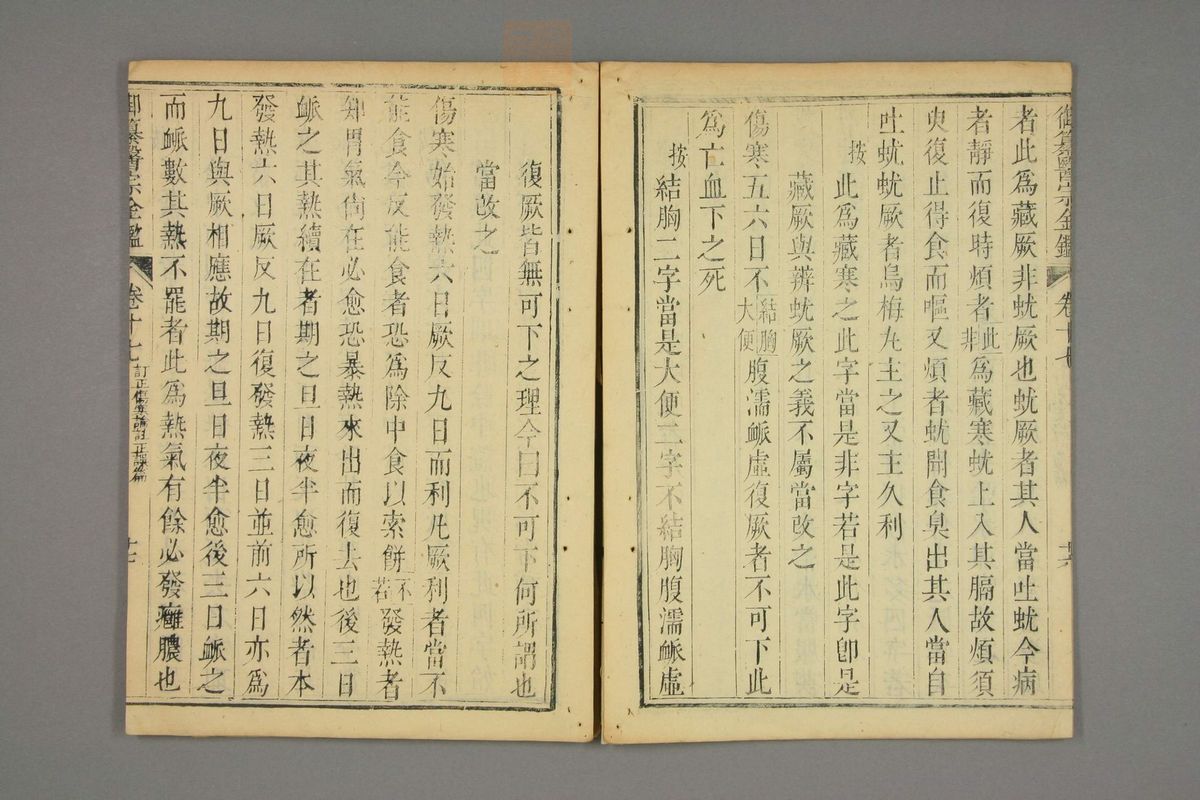 御纂醫宗金鑑 卷十七
者此爲藏厥非蚘厥也蚘厥者其人當吐蚘今病
者靜而復時煩者此非爲藏寒蚘上入其膈故煩須
臾復止得食而嘔又煩者蚘聞食臭出其人當自
吐蚘蚘厥者烏梅丸主之又主久利
按此爲藏寒之此字當是非字若是此字卽是
藏厥與辨蚘厥之義不屬當改之
傷寒五六日不結胸大便腹濡衇虛復厥者不可下此
爲亡血下之死
按結胸二字當是大便二字不結胸腹濡衇虛
復厥皆無可下之理今曰不可下何所謂也
當改之
傷寒始發熱六日厥反九日而利凡厥利者當不
能食今反能食者恐爲除中食以索餅不若發熱者
知胃氣尙在必愈恐暴熱來出而復去也後三日
衇之其熱續在者期之旦日夜半愈所以然者本
發熱六日厥反九日復發熱三日並前六日亦爲
九日與厥相應故期之旦日夜半愈後三日衇之
而衇數其熱不罷者此爲熱氣有餘必發癰膿也
御纂醫宗金鑑 卷十七 訂正傷寒論註正誤篇